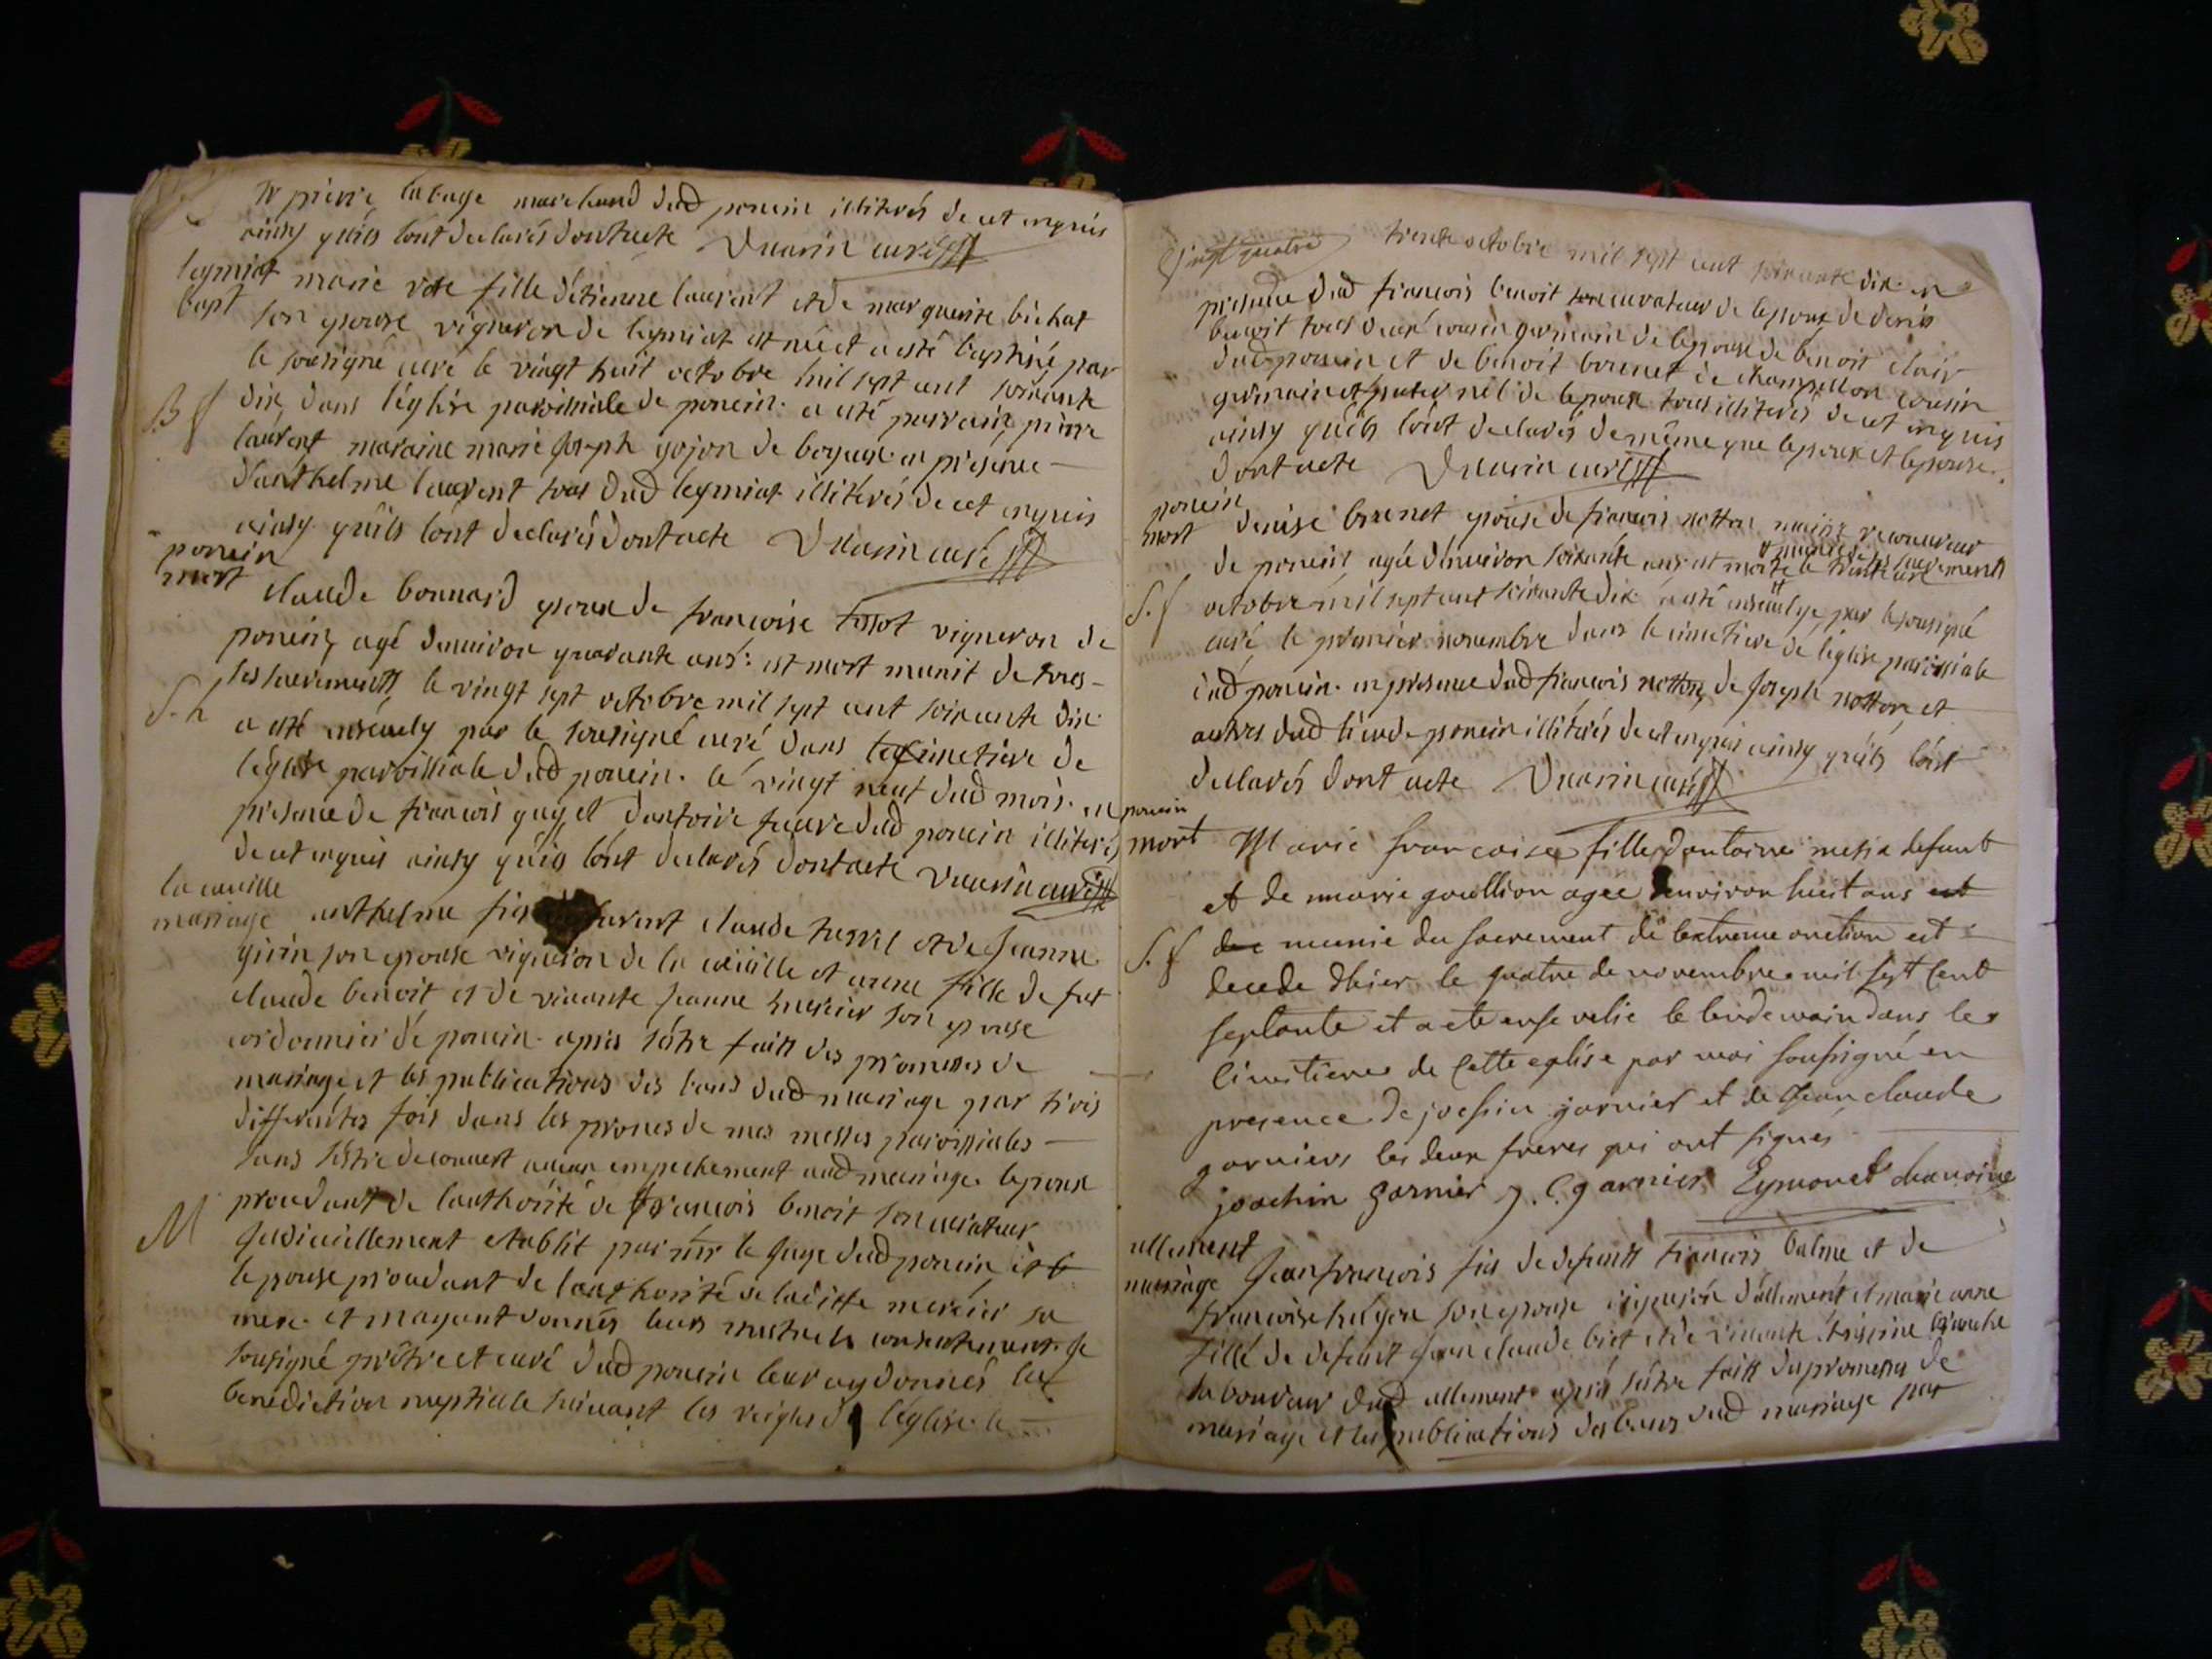 Sr pierre labaye marchand dud poncin illiterés de ce enquis
ainsy quils lont declarés dont acte Duarin curé
leymiat
bapt
marie rose fille detienne laurent et de marguerite bichat
son epouse vigneron de leymiat est née et a esté baptisé par
le sousigné curé le vingt huit octobre mil sept cent soixante
B f
dix dans léglise paroissiale de poncin. a esté parrain pierre
laurent maraine marie joseph gojon de boyeux en presence
danthelme laurent tous dud leymiat illitérés de cet enquis
ainsy quils lont declarés dont acte Duarin curé
poncin
mort
claude bonnard epoux de francoise tissot vigneron de
poncin, agé denviron quarante ans. est mort munit de tous
ses sacrements, le vingt sept octobre mil sept cent soixante dix
S. h
a esté enseuely par le sousigné curé dans le cimetiere de
léglise paroissiale dud poncin. le vingt neuf dud mois. en
presence de francois guyet dantoine feuvre dud poncin illiterés
de cet enquis ainsy quils lont declarés dont acte Duarin curé
la cueille
mariage
anthelme fils defunt claude tussel et de Jeanne
girin son epouse vigneron de la cueille et anne fille de fut
claude benoit et de vivante jeanne mercier son epouse
cordonnier de poncin. apres sêtre faitt des promesses de
mariage, et les publications des bans dud mariage par trois
differentes fois dans les prones de mes messes paroissiales
sans sêstre decouvert aucun empechement aud mariage. lepoux
procedant de lauthorité de francois benoit son curateur
M
judiciellement etablit par mr le juge dud poncin, et
lepouse procedant de lauthorité de laditte mercier sa
mere. et mayant donnés leurs mutuels consentement. je
sousigné prêtre et curé dud poncin leur ay donnés la
benediction nuptialle suivant les reigles de léglise. le
vingt quatre trente octobre mil sept cent soixante dix. en
presence dud francois benoit curateur de lepoux, de denis
benoit cousin germain de lepouse de benoit clair
dud poncin et de benoit brunet de champeillon cousin
germain et paternel de lepoux tous illiterés de cet enquis
ainsy quils lont declarés de même que lepoux et lepouse.
dont acte Duarin curé
poncin
mort
denise brunet epouse de francois notton
de poncin, agée denviron soixante ans est morte munie de ses sacrements le trente un
S. f
octobre mil sept cent soixante dix a esté enseuelye par le sousigné
curé le premier novembre dans le cimetiere de léglise paroissiale
dud poncin. en presence dud francois notton, de joseph notton, et
autres dud lieu de poncin illitérés de cet enquis ainsy quils lont
declarés dont acte Duarin curé
poncin
mort
Marie francoise fille dantoine defunt
et de marie goullion agée denviron huit ans est
S. f
de munie du sacrement de lextreme onction est
decede dhier le quatre de novembre mil sept cent
septante et a ete ensevelie le lendemain dans le
cimetiere de cette eglise par moi soussigné en
presence de joachin garnier et de Jean claude
garniers les deux freres qui ont signés
joachin garnier j. C. garnier Eymonet chanoine
allement
mariage
Jean francois fils de defuntt francois balme et de
francoise son epouse vigneron dallement et marie anne
fille de defunt jean claude biet et de vivante
laboureur dud allement apres sêtre faitt des promesses de
mariage et les publications des bans dud mariage par